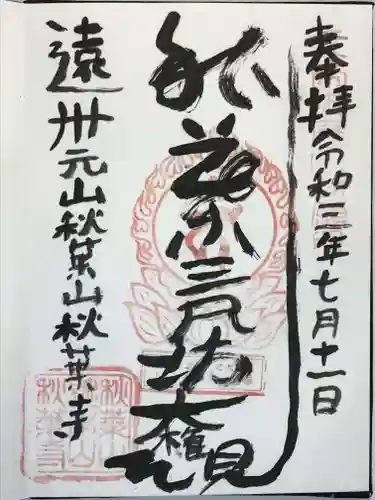 奉拝 令和三年七月十一日
秋葉三尺坊大権現
遠州 元山 秋葉山 秋葉寺